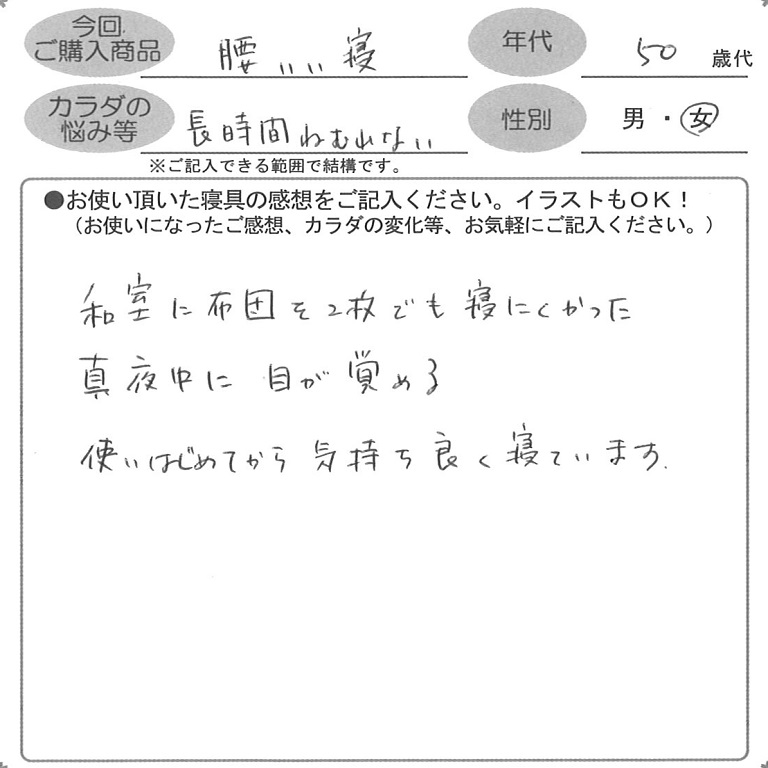 今回
ご購入商品
腰いい寝
年代
50 歳代
カラダの
悩み等
長時間ねむれない
性別
男・女
※ご記入できる範囲で結構です。
●お使い頂いた寝具の感想をご記入ください。イラストもOK！
（お使いになったご感想、カラダの変化等、お気軽にご記入ください。）
和室に布団を2枚でも寝にくかった
真夜中に目が覚める
使いはじめてから気持ち良く寝ています.